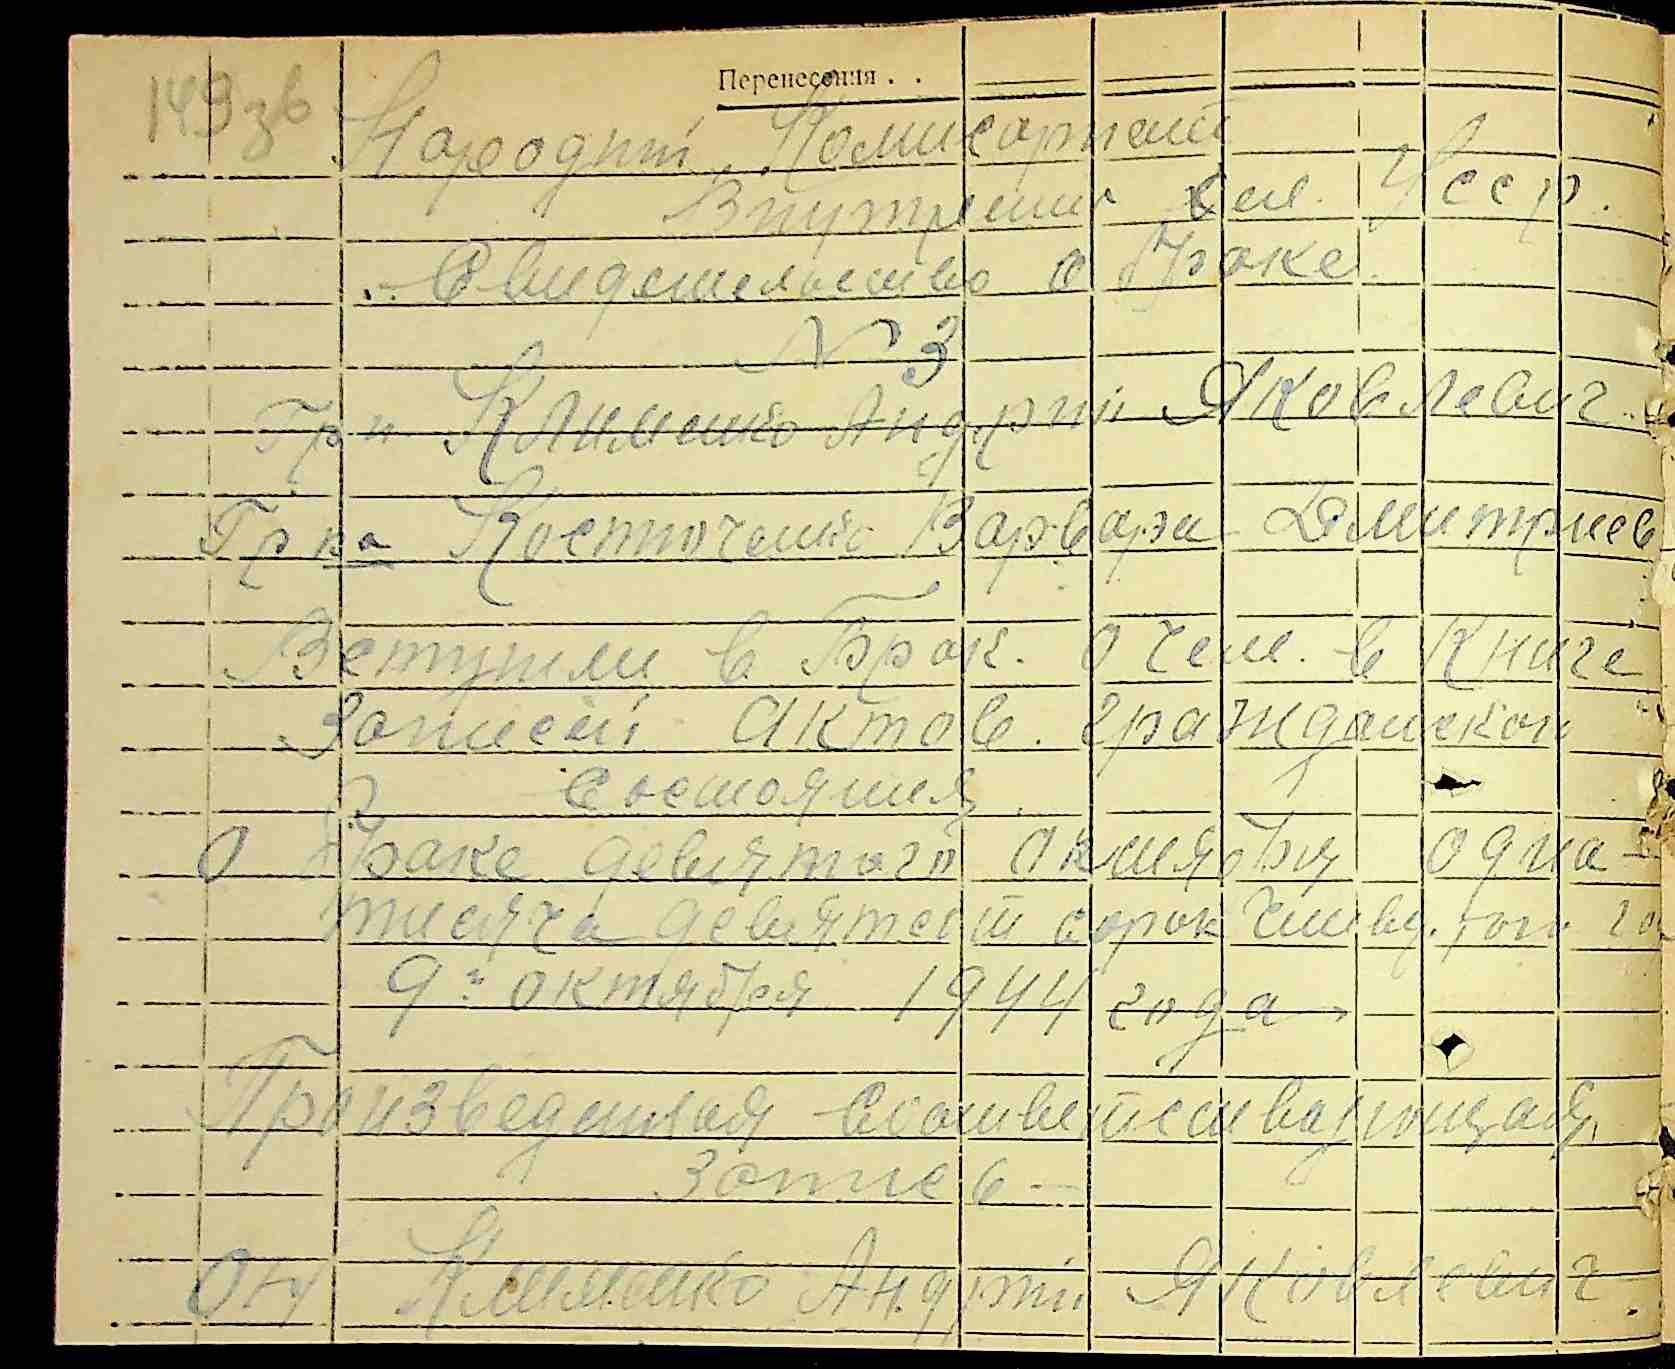 Перенесения . .
149 зв
Народний Комисариат
Внутрених Дел. Усср.
Свидетельство о Браке.
N 3
Гр н Клименко Андрий Яковлевич.
Гр ка Косточенко Варвара Дмитриев
Вступили в Брак. о чем. в Книге
Записей Актов. гражданской
Состояния.
О Браке девятого октября одна-
тисяча девятсот сорок
9го октября 1944 года
Произведенная Соответствующая,
Запис ь-
Клименко Андрий Яковлевич.